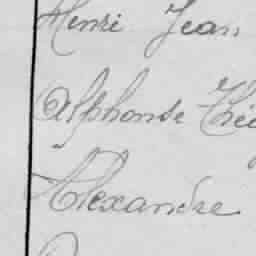 Henri Jean
Alphonse
Alexandre